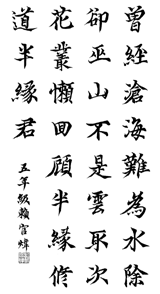 曾經滄海難為水除
卻巫山不是雲取次
花叢懶回顧半緣修
道半緣君
五年級賴官煒